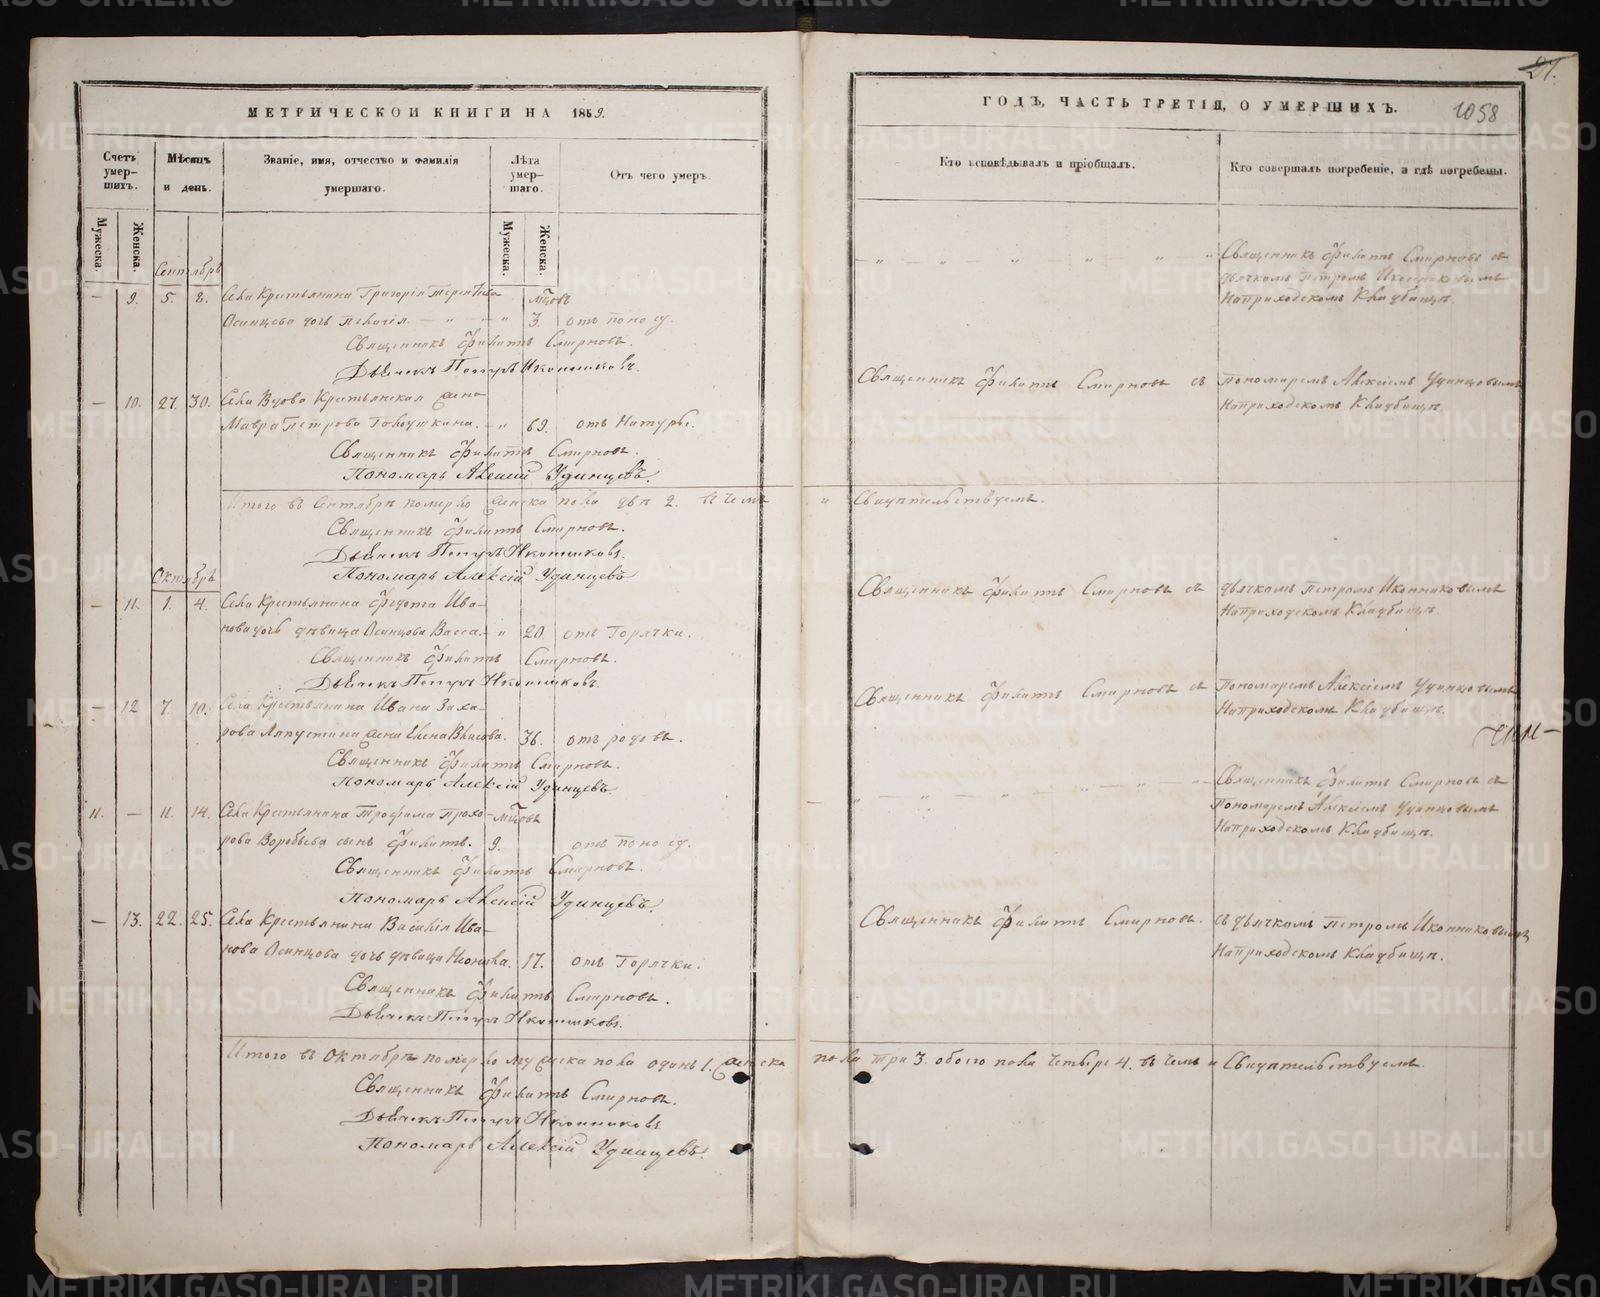 МЕТРИЧЕСКОЙ КНИГИ НА 1859.
Счетъ умер-шихъ.
Мѣсяцъ и день.
Званіе, имя, отчество и фамилія умершаго.
Лѣта умер-шаго.
Отъ чего умеръ.
Мужеска.
Женска.
Мужеска.
Женска.
Сентябрь
— 9. 5. 8. Села Крестьянина Григорія мѣцовъ
Осинцева дочь Пелагія. — „ — „ 3. отъ поносу.
Священникъ Филиппъ Смирновъ.
Дьячекъ Петръ Иконниковъ.
— 10. 27. 30. Села Вдова Крестьянская жена
Мавра Петрова Голоушкина. — „ 69. отъ Натуры.
Священникъ Филиппъ Смирновъ.
Пономарь Алексій Удинцевъ.
Итого въ Сентябрѣ померло женска пола двѣ 2. въ чемъ
Священникъ Филиппъ Смирновъ.
Дьячекъ Петръ Иконниковъ.
Пономарь Алексій Удинцевъ
Октябрь
— 11. 1. 4. Села Крестьянина Федота Ива-
нова дочь дѣвица Осинцова Васса. — „ 20. отъ Горячки.
Священникъ Филиппъ Смирновъ.
Дьячекъ Петръ Иконниковъ.
— 12 7. 10. Села Крестьянина Ивана Заха-
рова Лапустина жена Елена Власова. 36. отъ родовъ.
Священникъ Филиппъ Смирновъ.
Пономарь Алексій Удинцевъ
11. — 11. 14. Села Крестьянина Трофима Прохо- мѣцовъ
рова Воробьева сынъ Филиппъ. 9. отъ поносу.
Священникъ Филиппъ Смирновъ.
Пономарь Алексій Удинцевъ.
— 13. 22. 25. Села Крестьянина Василія Ива-
нова Осинцова дочь дѣвица Неонила. 17. отъ Горячки.
Священникъ Филиппъ Смирновъ.
Дьячекъ Петръ Иконниковъ.
Итого въ Октябрѣ померло мужеска пола одинъ 1. женска
Священникъ Филиппъ Смирновъ.
Дьячекъ Петръ Иконниковъ
Пономарь Алексій Удинцевъ.
21.
ГОДЪ, ЧАСТЬ ТРЕТІЯ, О УМЕРШИХЪ.
1058
Кто исповѣдывалъ и пріобщалъ.
Кто совершалъ погребеніе, и гдѣ погребены.
Священникъ Филиппъ Смирновъ съ
дьячкомъ Петромъ Иконниковымъ
На приходскомъ Кладбищѣ.
Священникъ Филиппъ Смирновъ съ Пономаремъ Алексіемъ Удинцовымъ
На приходскомъ Кладбищѣ.
и Свидѣтельствуемъ.
Священникъ Филиппъ Смирновъ съ дьячкомъ Петромъ Иконниковымъ
На приходскомъ Кладбищѣ.
Священникъ Филиппъ Смирновъ съ Пономаремъ Алексіемъ Удинцовымъ
На приходскомъ Кладбищѣ.
Священникъ Филиппъ Смирновъ съ
Пономаремъ Алексіемъ Удинцовымъ
На приходскомъ Кладбищѣ.
Священникъ Филиппъ Смирновъ. съ дьячкомъ Петромъ Иконниковымъ
На приходскомъ Кладбищѣ.
пола три 3. обоего пола Четверо 4. въ чемъ и Свидѣтельствуемъ.
METRIKI.GASO-URAL.RU